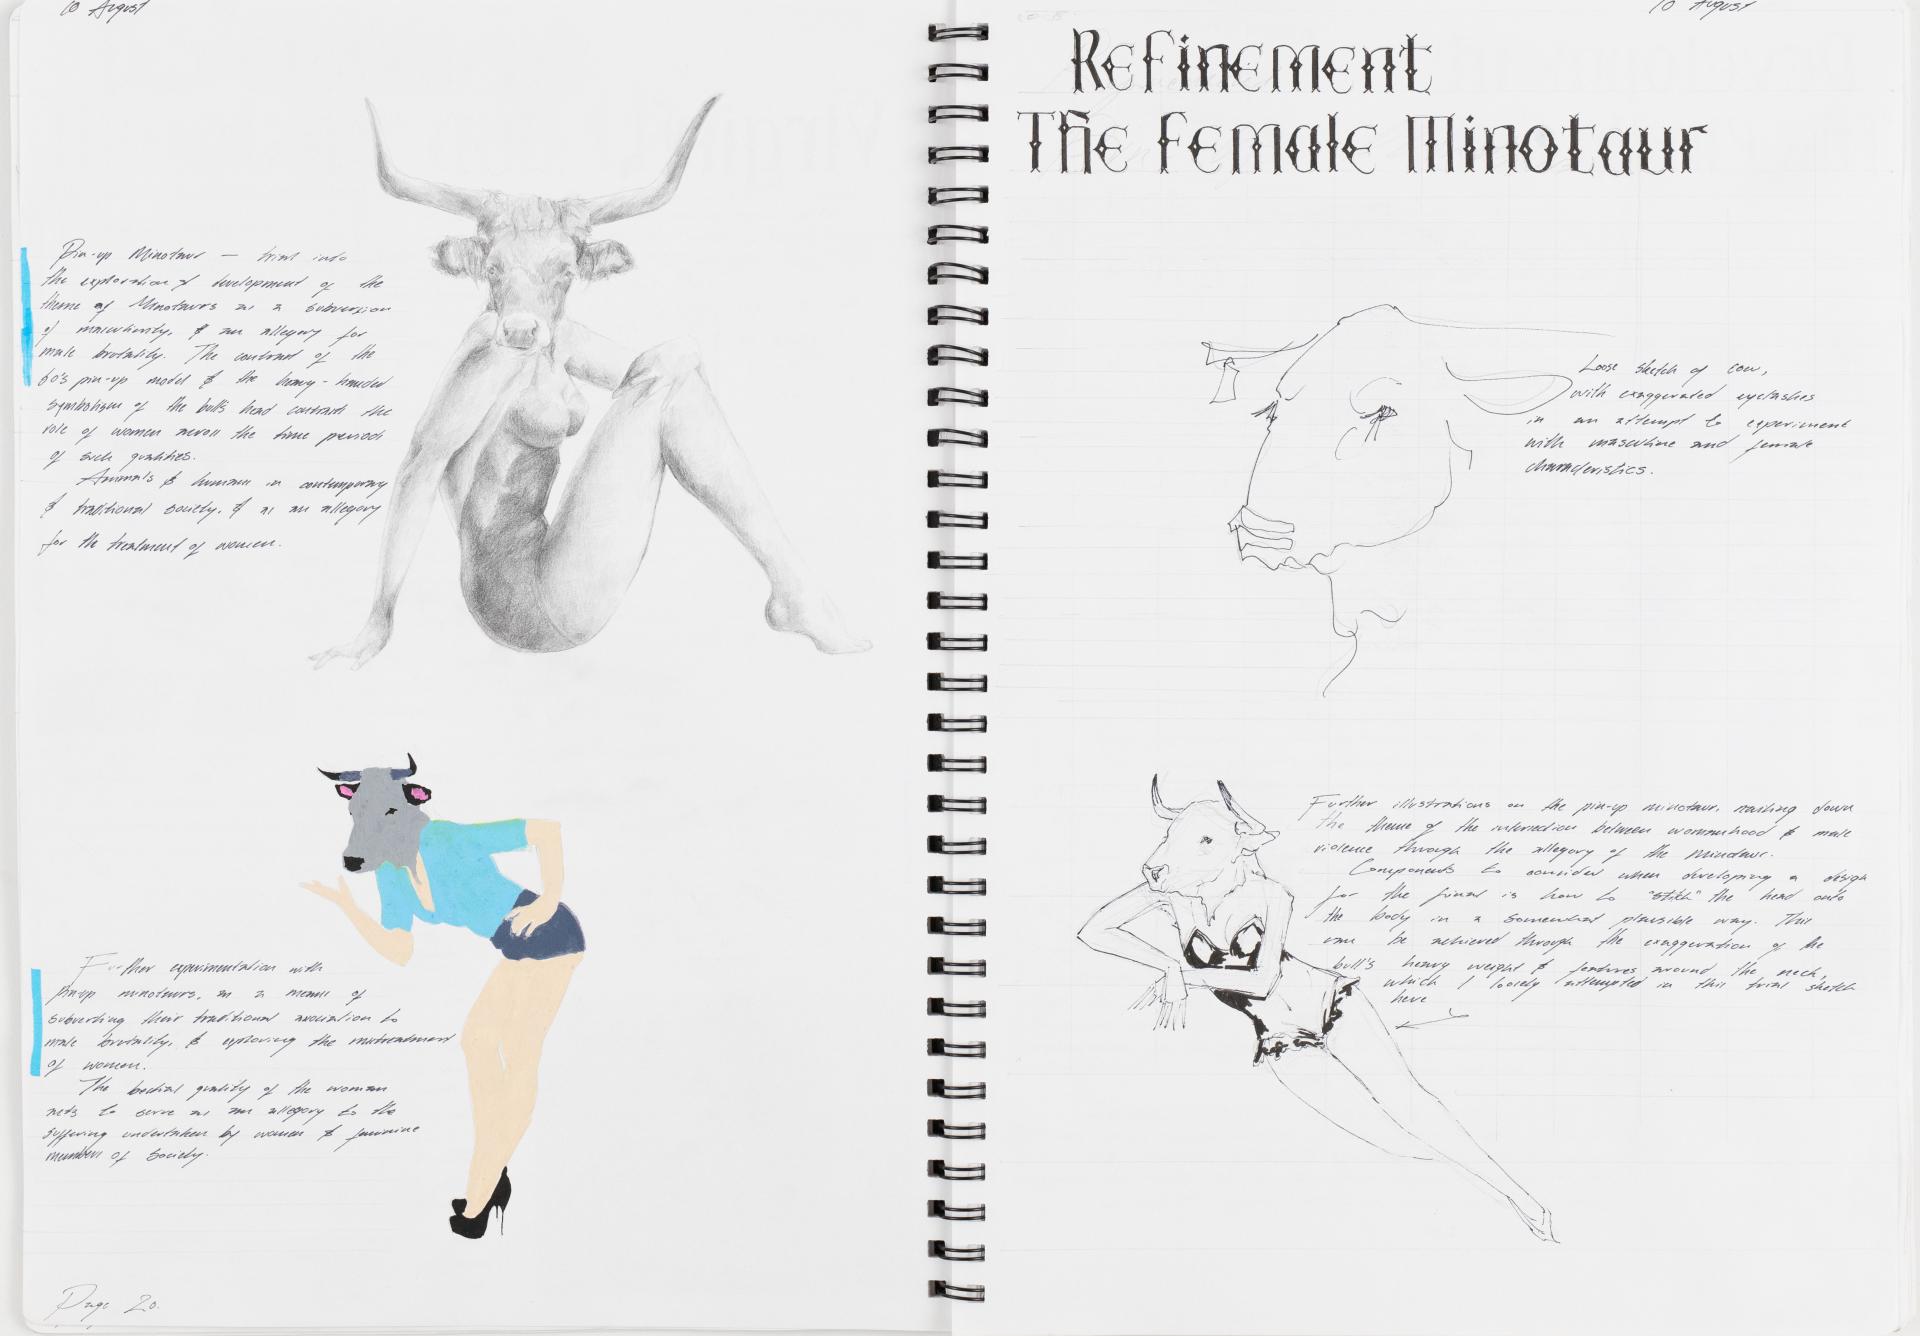 10 August
Pin-up Minotaur — trial into
the exploration & development of the
theme of Minotaurs as a subversion
of masculinity, & an allegory for
male brutality. The contrast of the
60's pin-up model & the heavy-handed
symbolism of the bull's head contrasts the
role of women across the time periods
of such qualities.
Animals & humans in contemporary
& traditional society, & as an allegory
for the treatment of women.
Further experimentation with
pin-up minotaurs, as a means of
subverting their traditional association to
male brutality, & exploring the mistreatment
of women.
The bestial quality of the woman
acts to serve as an allegory to the
suffering undertaken by women & feminine
members of society.
Page 20.
10 August
Refinement
The Female Minotaur
Loose sketch of cow,
with exaggerated eyelashes
in an attempt to experiment
with masculine and female
characteristics.
Further illustrations on the pin-up minotaur, nailing down
the theme of the intersection between womanhood & male
violence through the allegory of the Minotaur.
Components to consider when developing a design
for the final is how to "stitch" the head onto
the body in a somewhat plausible way. This
can be achieved through the exaggeration of the
bull's heavy weight & features around the neck,
which I loosely attempted in this trial sketch
here